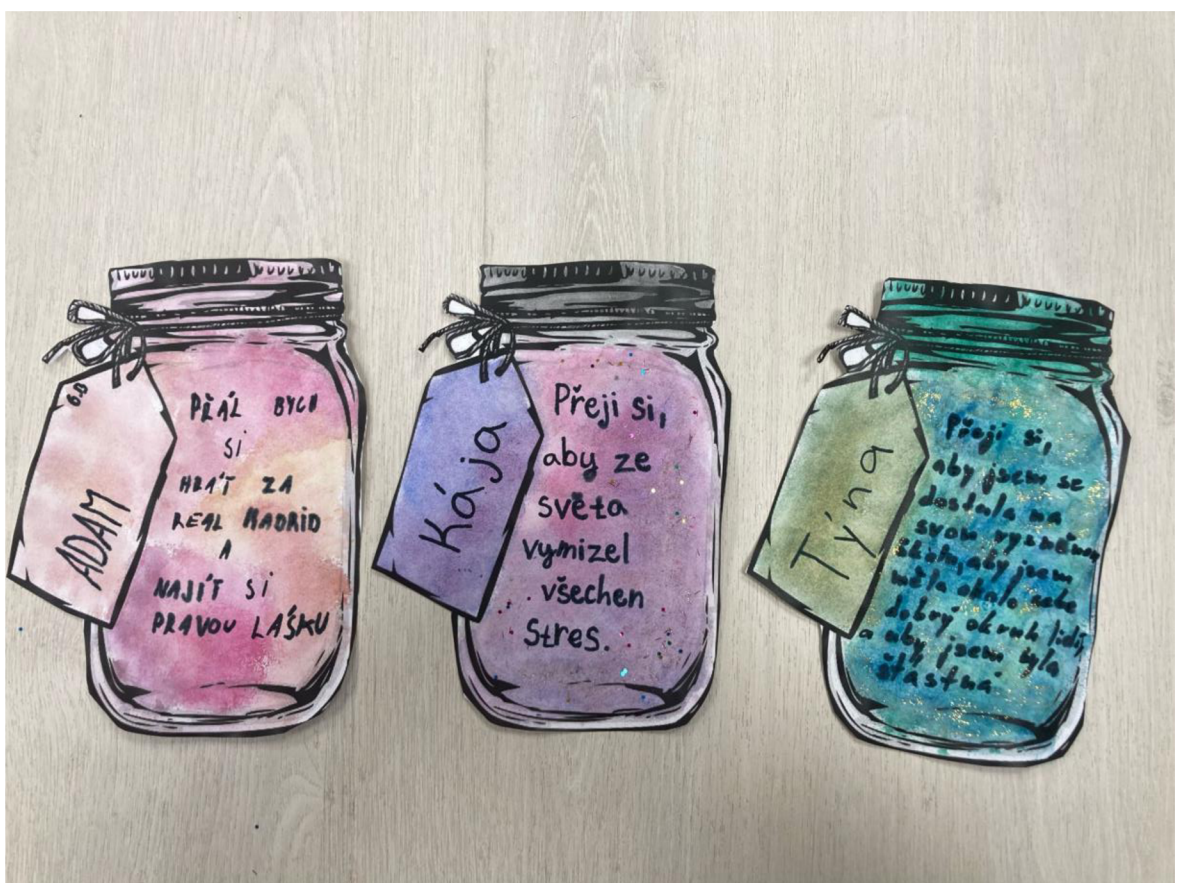 6.D
ADAM
PŘÁL BYCH
SI
HRÁT ZA
REAL MADRID
A
NAJÍT SI
PRAVOU LÁSKU
Kája
Přeji si,
aby ze
světa
vymizel
všechen
stres.
Týna
Přeji si,
aby jsem se
dostala na
svou vysněnou
školu, aby jsem
měla okolo sebe
dobrý okruh lidí,
a aby jsem byla
šťastná